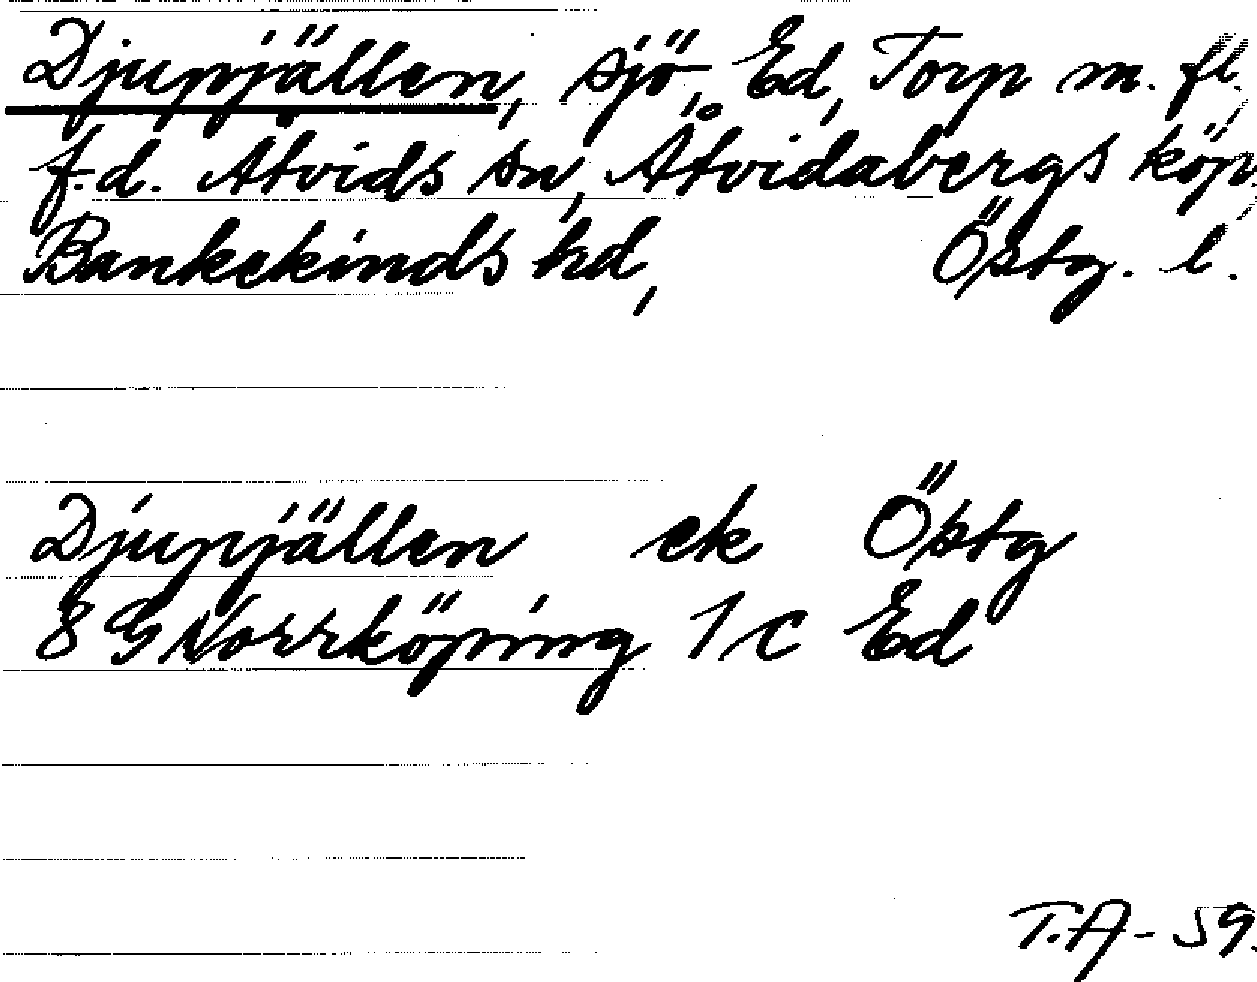 Djupjällen, sjö, Ed, Torp m. fl.,
f.d. Åtvids sn, Åtvidabergs köp.,
Bankekinds hd, Östg. l.
Djupjällen ek Östg
8 G Norrköping 1 c Ed
T.A - 59.